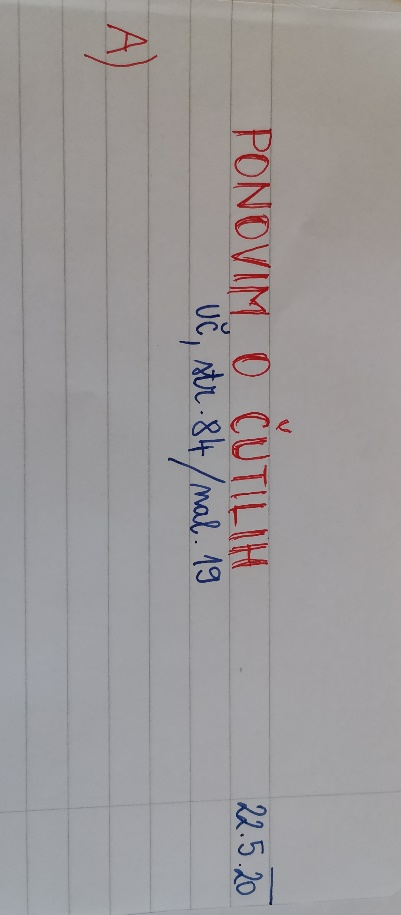 22.5.20
PONOVIM O ČUTILIH
UČ, str. 84/nal. 19
A)